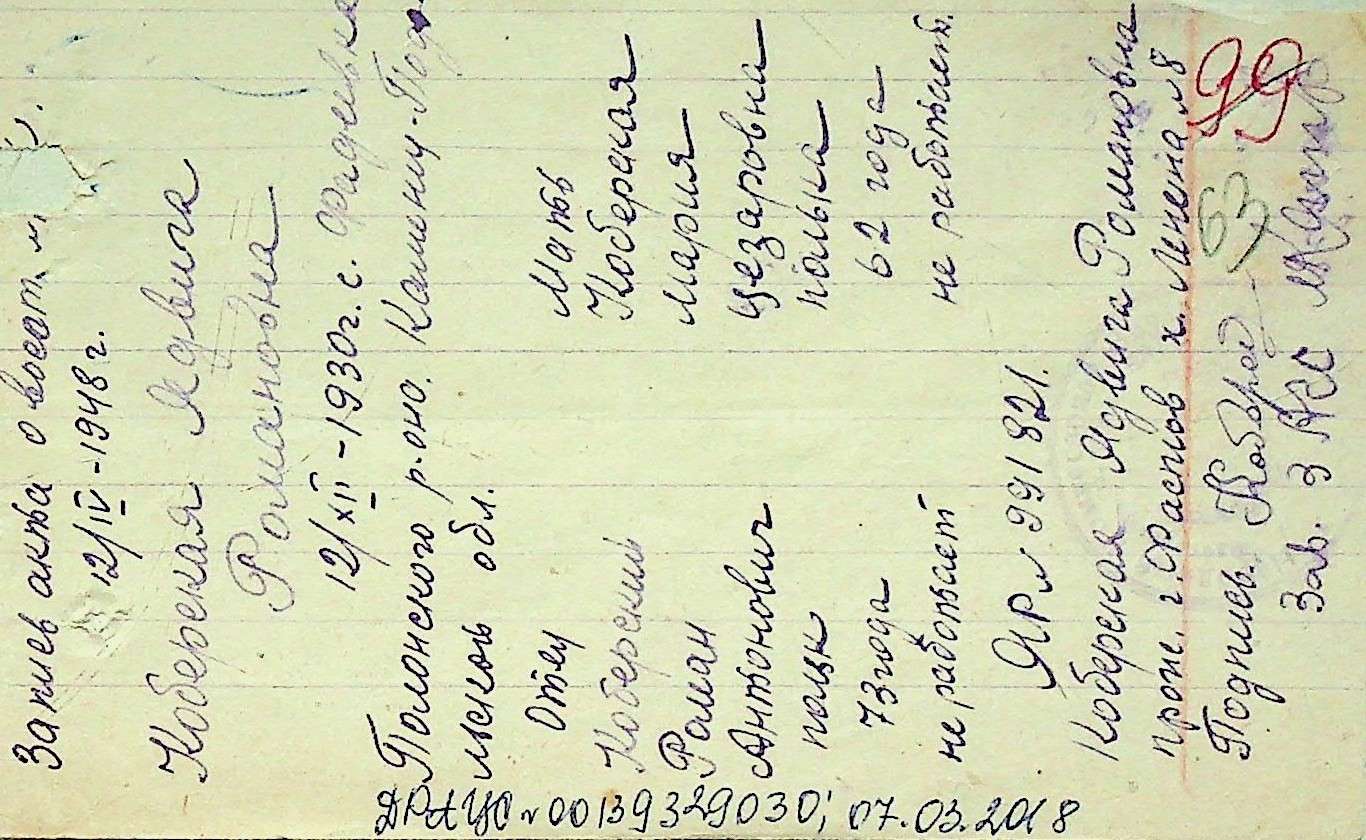 Запись акта о восст. №
12/IV - 1948 г.
Коберская Ядвига
Романовна
12/XII - 1930 г. с. Фадеевка
Полонского р-она. Каменец-Под
льской обл.
Отец
Коберский
Роман
Антонович
поляк
73 года
не работает
Мать
Коберская
Мария
Цезаровна
полька
62 года
не работает.
ЯР № 991821.
Коберская Ядвига Романовна
прож. г. Фастов х. Ленена № 8
Подпись. Кобер
Зав. ЗАГС
99
63
ДРАЦС № 00139329030; 07.03.2018